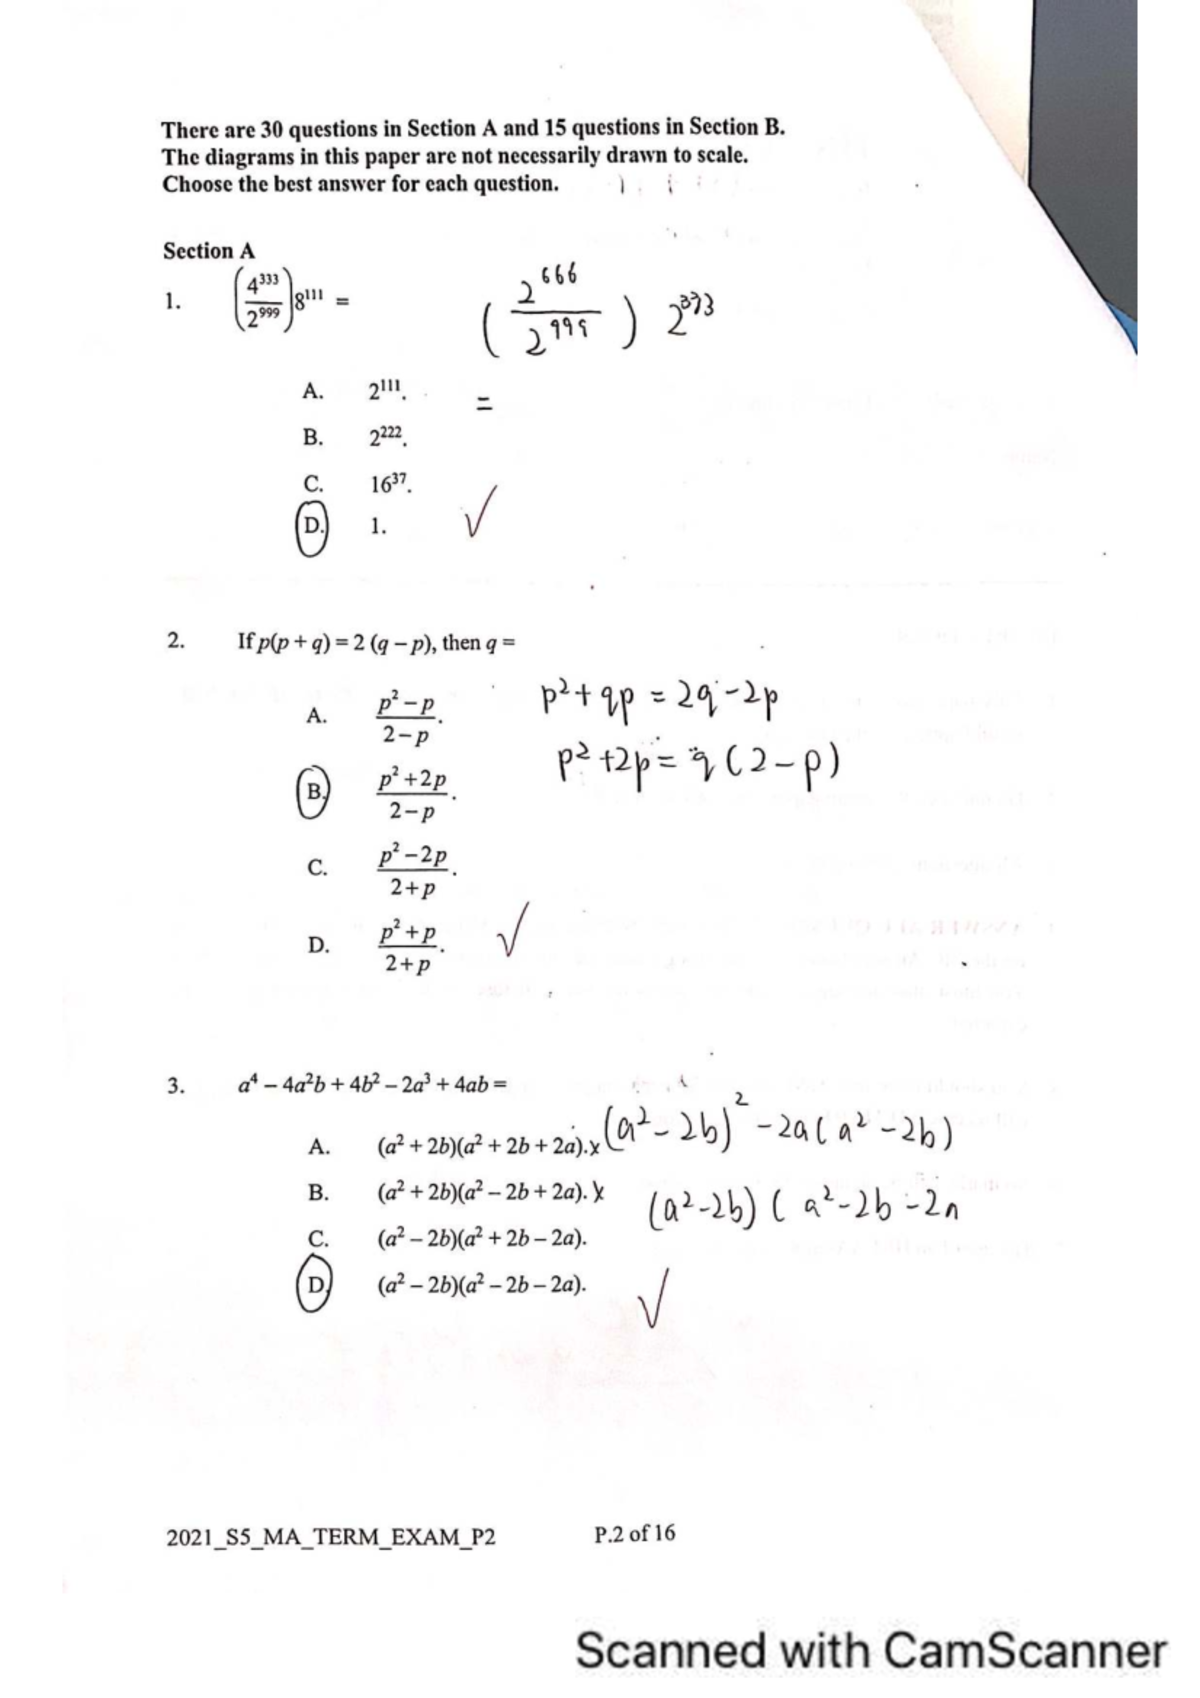 There are 30 questions in Section A and 15 questions in Section B.
The diagrams in this paper are not necessarily drawn to scale.
Choose the best answer for each question.
Section A
1. (4³³³/2⁹⁹⁹)8¹¹¹ =
(2⁶⁶⁶/2⁹⁹⁹) 2³³³
=
A. 2¹¹¹.
B. 2²²².
C. 16³⁷.
D. 1. ✓
2. If p(p + q) = 2 (q – p), then q =
p² + qp = 2q - 2p
p² + 2p = q (2 - p)
A. (p² – p)/(2 – p).
B. (p² + 2p)/(2 – p).
C. (p² – 2p)/(2 + p).
D. (p² + p)/(2 + p). ✓
3. a⁴ – 4a²b + 4b² – 2a³ + 4ab =
(a² - 2b)² - 2a(a² - 2b)
(a² - 2b) ( a² - 2b - 2a
A. (a² + 2b)(a² + 2b + 2a). x
B. (a² + 2b)(a² – 2b + 2a). x
C. (a² – 2b)(a² + 2b – 2a).
D. (a² – 2b)(a² – 2b – 2a). ✓
2021_S5_MA_TERM_EXAM_P2 P.2 of 16
Scanned with CamScanner